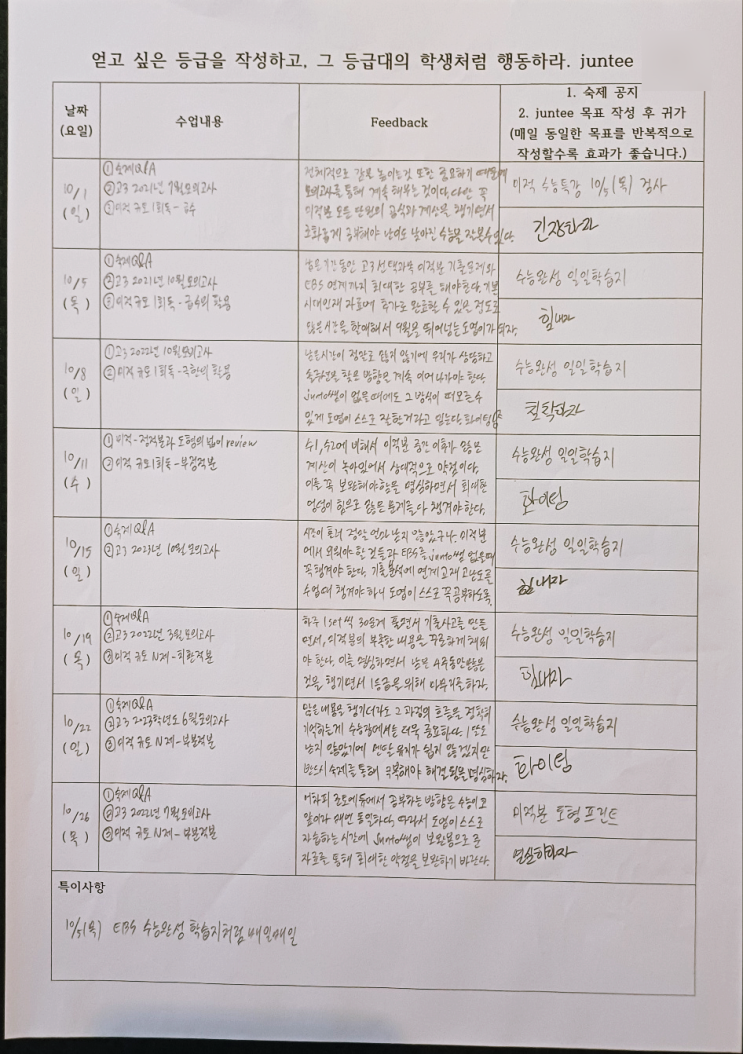 얻고 싶은 등급을 작성하고, 그 등급대의 학생처럼 행동하라. juntee
날짜
(요일)
수업내용
Feedback
1. 숙제 공지
2. juntee 목표 작성 후 귀가
(매일 동일한 목표를 반복적으로
작성할수록 효과가 좋습니다.)
10/1
(일)
① 숙제Q&A
② 고3 2021년 7월모의고사
③ 미적 규모 1회독 - 급수
모의고사를 통해 계속 해두는 것이다. 다만 꼭
미적분 모든 단원의 공식과 계산을 챙기면서
조화롭게 공부해야 난이도 낮아진 수능을 잘볼수 있다.
미적 수능특강 10/5(목) 검사
긴장하자
10/5
(목)
① 숙제Q&A
② 고3 2021년 10월모의고사
③ 미적 규모 1회독 - 급수의 활용
남은기간동안 고3 선택과목 미적분 기출문제와
EBS 연계까지 최대한 공부를 해야한다. 기본
시대인재 자료에 추가로 완료할 수 있을 정도로
많은시간을 할애해서 9월을 뛰어넘는 도영이가 되자.
수능완성 일일학습지
힘내자
10/8
(일)
① 고3 2022년 10월모의고사
② 미적 규모 1회독 - 극한의 활용
남은시간이 정말로 많지 않기에 우리가 상담하고
계속 이어나가야 한다.
junto쌤이 없을때에도 그 방식이 떠오를수
있게 도영이 스스로 잘할거라고 믿는다. 화이팅
수능완성 일일학습지
침착하자
10/11
(수)
① 미적 - 정적분과 도형의 넓이 review
② 미적 규모 1회독 - 부정적분
수1, 수2에 비해서 미적분 공간 이유가 많은
계산이 녹아있어서 상대적으로 약점이다.
이를 꼭 보완해야함을 명심하면서 최대한
엉덩이 힘으로 많은 문제들 다 챙겨야 한다.
수능완성 일일학습지
화이팅
10/15
(일)
① 숙제Q&A
② 고3 2023년 10월모의고사
시간이 흘러 정말 얼마 남지 않았구나. 미적분
에서 외워야 할 것들과 EBS를 junto쌤 없을때
꼭챙겨야 한다. 기출분석에 연계교재 고난도를
수업때 챙겨야 하니 도영이 스스로 꼭공부하도록.
수능완성 일일학습지
힘내자
10/19
(목)
① 숙제Q&A
② 고3 2022년 3월모의고사
③ 미적 규토 N제 - 치환적분
하루 1set씩 30문제 풀면서 기출사고를 만들
면서, 미적분의 부족한 내용을 꾸준하게 채워
야 한다. 이를 명심하면서 남은 4주동안 많은
것을 챙기면서 1등급을 위해 마무리를 하자.
수능완성 일일학습지
힘내자
10/22
(일)
① 숙제Q&A
② 고3 2023학년도 6월모의고사
③ 미적 규토 N제 - 부분적분
많은내용을 챙기더라도 그 과정의 흐름을 정확히
기억하는게 수능장에서는 더욱 중요하다. 1달도
남지 않았기에 멘탈 유지가 쉽지 않겠지만
반드시 숙제를 통해 극복해야 해결됨을 명심하자.
수능완성 일일학습지
화이팅
10/26
(목)
① 숙제Q&A
② 고3 2022년 7월모의고사
③ 미적 규토 N제 - 부분적분
공부하는 방향은 수능이고
동일하다. 따라서 도영이 스스로
자습하는 시간에 junto쌤이 보완용으로 준
자료를 통해 최대한 약점을 보완하기 바란다.
미적분 도형 프린트
열심히하자
특이사항
10/5(목) EBS 수능완성 학습지처럼 매일매일